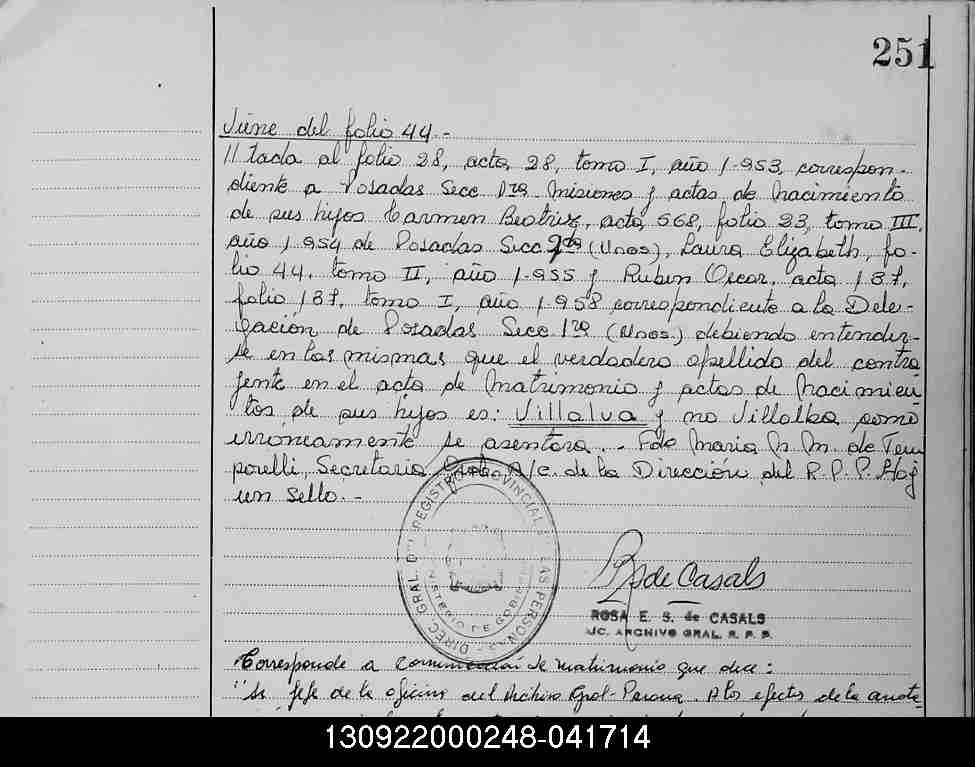 251
Viene del folio 44.-
//tada al folio 28, acta 28, tomo I, año 1.953, correspon-
diente a Posadas Secc 1ra Misiones y actas de Nacimiento
de sus hijos Carmen Beatriz, acta 568, folio 23, tomo III,
año 1.954 de Posadas Secc. 2da (Mnes), Laura Elizabeth, fo-
lio 44, tomo II, año 1.955 y Ruben Oscar, acta 187,
folio 187, tomo I, año 1.958 correspondiente a la Dele-
gación de Posadas Secc 1ra (Mnes.) debiendo entender-
se en las mismas que el verdadero apellido del contra
yente en el acta de Matrimonio y actas de Nacimien
tos de sus hijos es: Villalva y no Villalba como
erróneamente se asentara.- Fdo Maria M. de Tem
porelli, Secretaria Gral. A/c. de la Dirección del R.P.P. Hay
un sello.-
DIREC. GRAL. DEL REGISTRO PROVINCIAL DE LAS PERSONAS
MINISTERIO DE GOBIERNO
de Casals
ROSA E. S. de CASALS
A/C. ARCHIVO GRAL. R. P. P.
Corresponde a de matrimonio que dice:
Jefe de la oficina del Archivo Gral-Parana. A los efectos de la anota
130922000248-041714